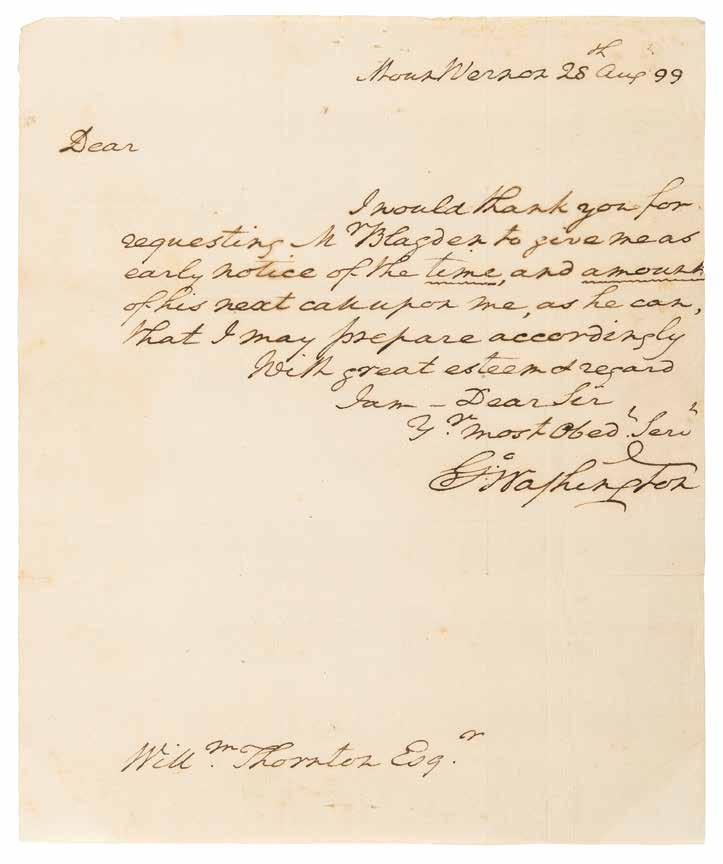 Mount Vernon 28th Aug 99
Dear
I would thank you for
requesting Mr Blagden to give me as
early notice of the time, and amount
of his next call upon me, as he can,
that I may prepare accordingly
With great esteem & regard
I am – Dear Sir
Yr. most Obedt. Servt
Go: Washington
Willm. Thornton Esqr.